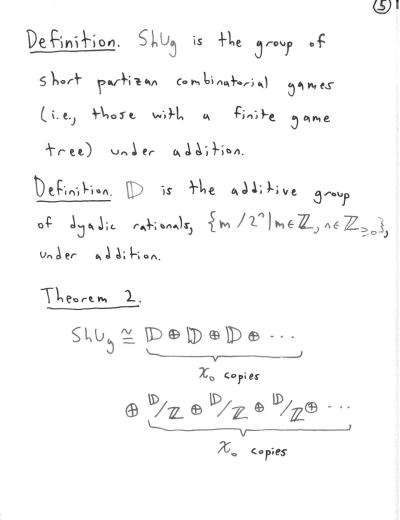 ⑤
Definition. ShUg is the group of
short partizan combinatorial games
(i.e., those with a finite game
tree) under addition.
Definition. 𝔻 is the additive group
of dyadic rationals, {m/2ⁿ|m∈ℤ, n∈ℤ≥0},
under addition.
Theorem 2.
ShUg ≅ 𝔻 ⊕ 𝔻 ⊕ 𝔻 ⊕ ···
ℵ₀ copies
⊕ 𝔻/ℤ ⊕ 𝔻/ℤ ⊕ 𝔻/ℤ ⊕ ···
ℵ₀ copies